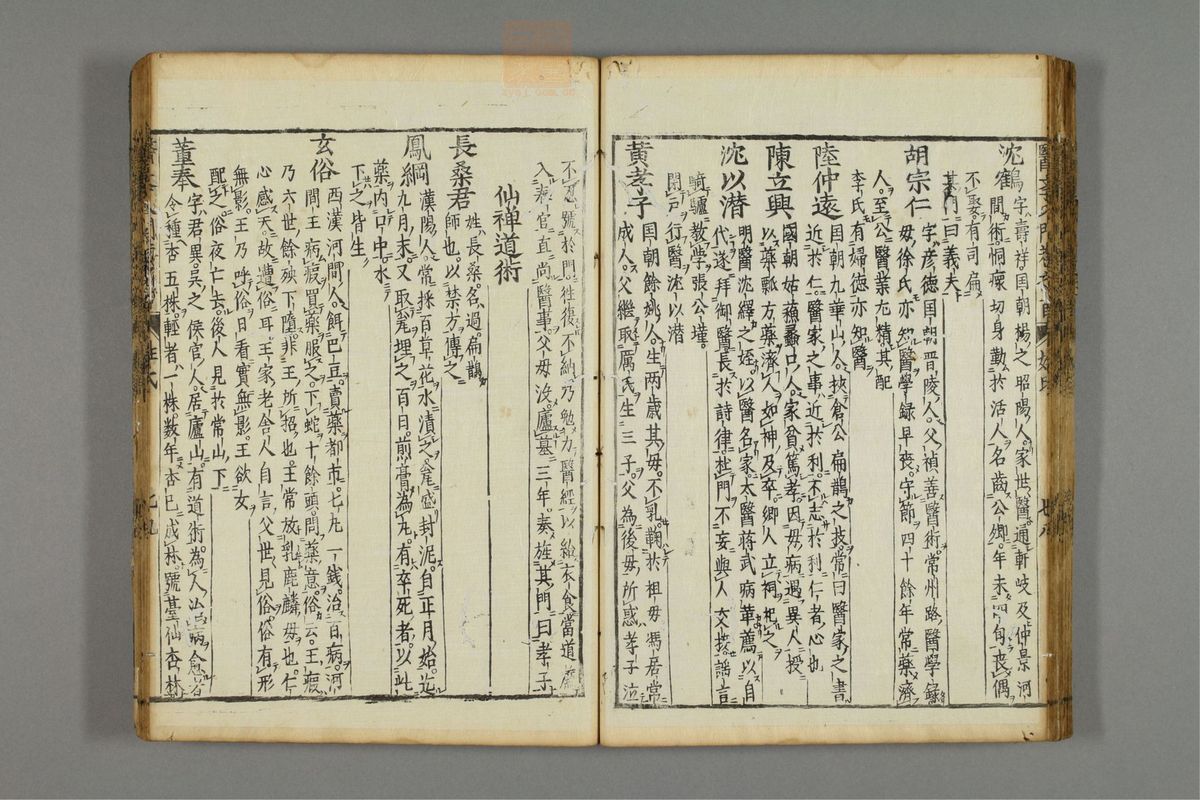 沈鶴 字壽祥国朝楊之昭陽人家世醫通軒岐及仲景河
間術恫瘝切身勤於活人名齒公卿年未四旬喪偶
不娶有司扁
其門曰義夫
胡宗仁 字彦徳国朝晋陵人父禎善醫術常州路醫學録
毋徐氏亦知醫學録早丧守節四十餘年常藥濟
人至公醫業尤精其配
李氏有婦徳亦知醫
陸仲遠 国朝九華山人挾倉公扁鵲之技常曰醫家之書
近於仁醫家之事近於利不志於利仁者心也
陳立興 國朝姑蘓蠡口人家貧篤孝因毋病遇異人授
以藥瓢方藥濟人如神及卒鄉人立祠祀之
沈以潜 明醫沈繹之姪以醫名家太醫蒋武病華薦以自
代遂拜御醫長於詩律杜門不妄與人交搃謡言
騎驢教學張公瑾
閉戸行醫沈以潜
黄孝子 国朝餘姚人生両歳其毋不乳鞠於祖毋馮居常
成人父継取厲氏生三子父為後毋所惑孝子泣
不忍號於門徃復不納乃勉力醫經以給衣食當道薦
入泰官直尚醫事父毋沒廬墓三年奏旌其門曰孝子
仙禅道術
長桑君 姓長桑名過扁鵲
師也以禁方傳之
鳳綱 漢陽人常採百草花水漬之瓮盛封泥自正月始迄
九月末又取瓮埋之百日煎膏為丸有卒死者以此
藥内口中水
下之皆生
玄俗 西漢河間人餌巴豆賣藥都市七丸一銭治百病河
間王病瘕買藥服之下蛇十餘頭問藥意俗云王瘕
乃六世餘殃下墮非王所招也王常放乳鹿麟毋也仁
心感天故遭俗耳王家老舎人自言父世見俗俗有形
無影王乃呼俗日看實無影王欲女
配之俗夜亡去後人見於常山下
董奉 字君異吳之侯官人居廬山有道術為人治病愈者
令種杏五株輕者一株数年杏已成林號董仙杏林